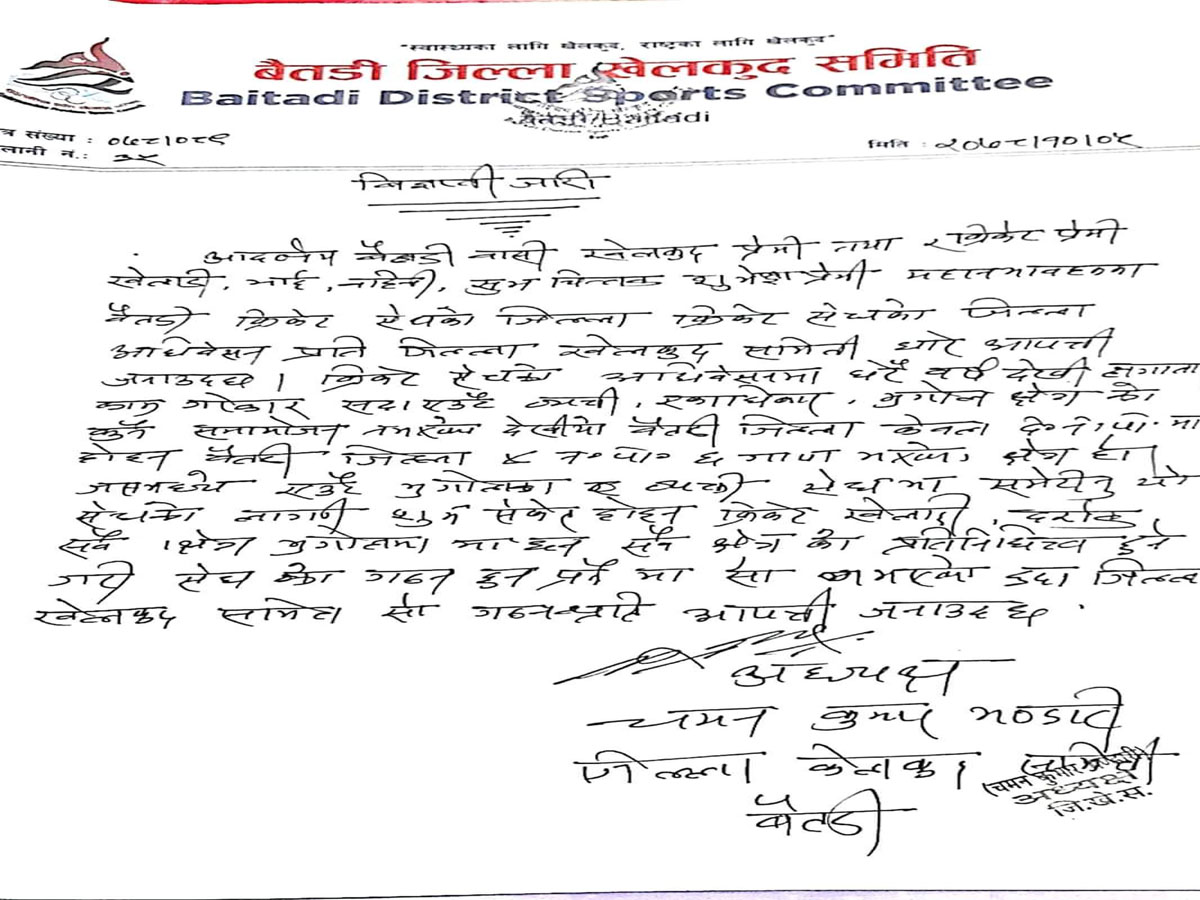 "स्वास्थ्यका लागि खेलकुद, राष्ट्रका लागि खेलकुद"
बैतडी जिल्ला खेलकुद समिति
Baitadi District Sports Committee
बैतडी/Baitadi
त्र संख्या : ०७८/०७९
लानी नं.: ३५
मिति : २०७८/१०/०५
विज्ञप्ती जारी
आदरणीय बैतडी वासी खेलकुद प्रेमी तथा क्रिकेट प्रेमी
खेलाडी, भाई, वहिनी, सुभ चिन्तक
बैतडी क्रिकेट संघको जिल्ला क्रिकेट संघको जिल्ला
अधिवेसन प्रति जिल्ला खेलकुद समिती घोर आपत्ती
जनाउदछ। क्रिकेट संघको अधिवेसनमा धेरै वर्ष देखी लगाता
काम गरेका भुगोल क्षेत्र को
कुनै समायोजन नभएको देखीयो बैतडी जिल्ला केवल मा
होइन बैतडी जिल्ला ४ न०पा० ६ गापा भएको क्षेत्र हो।
जसमध्ये एउटै भुगोलका व्यक्ती संघमा समेटीनु यो
संघको लागी शुभ संकेत होइन क्रिकेट खेलाडी, दर्शक
सवै क्षेत्र भुगोलमा भा हुन सवै क्षेत्र को प्रतिनिधित्व हुने
गरी संघ को गठन हुन पर्ने मा सो नभएको हुदा जिल्ला
खेलकुद समिती सो गठन प्रति आपत्ती जनाउदछ .
अध्यक्ष
चमन कुमार भण्डारी
जिल्ला खेलकुद समिती
बैतडी
(चमन कुमार भण्डारी)
अध्यक्ष
जि.खे.स.